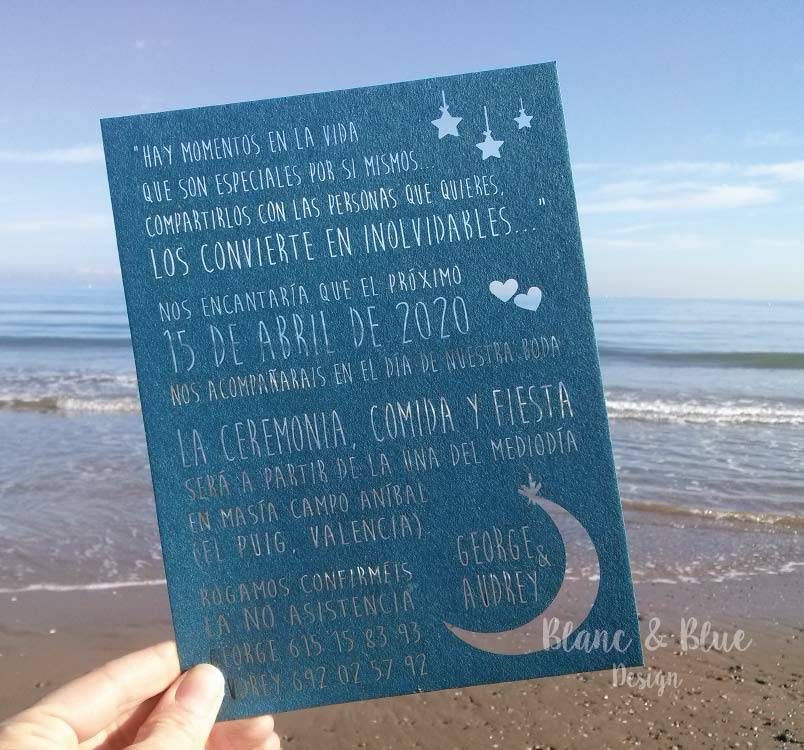 "HAY MOMENTOS EN LA VIDA
QUE SON ESPECIALES POR SI MISMOS...
COMPARTIRLOS CON LAS PERSONAS QUE QUIERES,
LOS CONVIERTE EN INOLVIDABLES..."
NOS ENCANTARÍA QUE EL PRÓXIMO
15 DE ABRIL DE 2020
NOS ACOMPAÑARAIS EN EL DÍA DE NUESTRA BODA
LA CEREMONIA, COMIDA Y FIESTA
SERÁ A PARTIR DE LA UNA DEL MEDIODÍA
EN MASÍA CAMPO ANÍBAL
(EL PUIG, VALENCIA)
ROGAMOS CONFIRMÉIS
LA NO ASISTENCIA
GEORGE 615 15 83 93
AUDREY 692 02 57 92
GEORGE
&
AUDREY
Blanc & Blue
Design